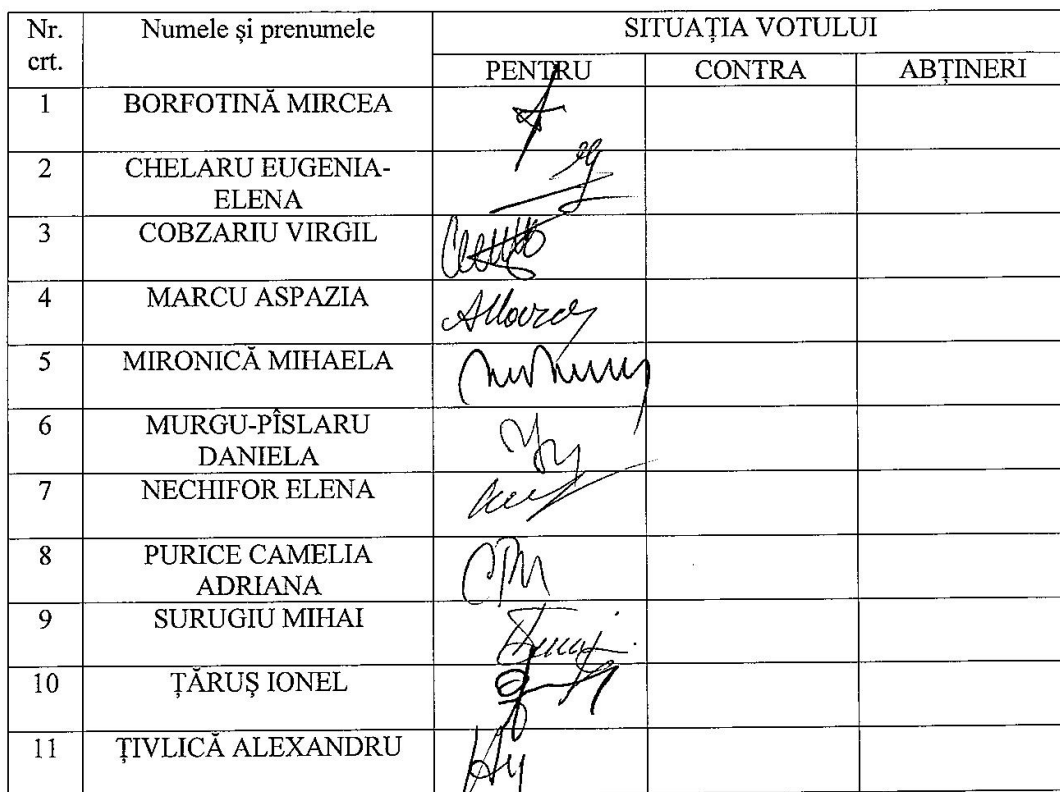 Nr. crt. Numele şi prenumele SITUAŢIA VOTULUI
PENTRU CONTRA ABŢINERI
1 BORFOTINĂ MIRCEA
2 CHELARU EUGENIA-
ELENA
3 COBZARIU VIRGIL
4 MARCU ASPAZIA
5 MIRONICĂ MIHAELA
6 MURGU-PÎSLARU
DANIELA
7 NECHIFOR ELENA
8 PURICE CAMELIA
ADRIANA
9 SURUGIU MIHAI
10 ŢĂRUŞ IONEL
11 ŢIVLICĂ ALEXANDRU